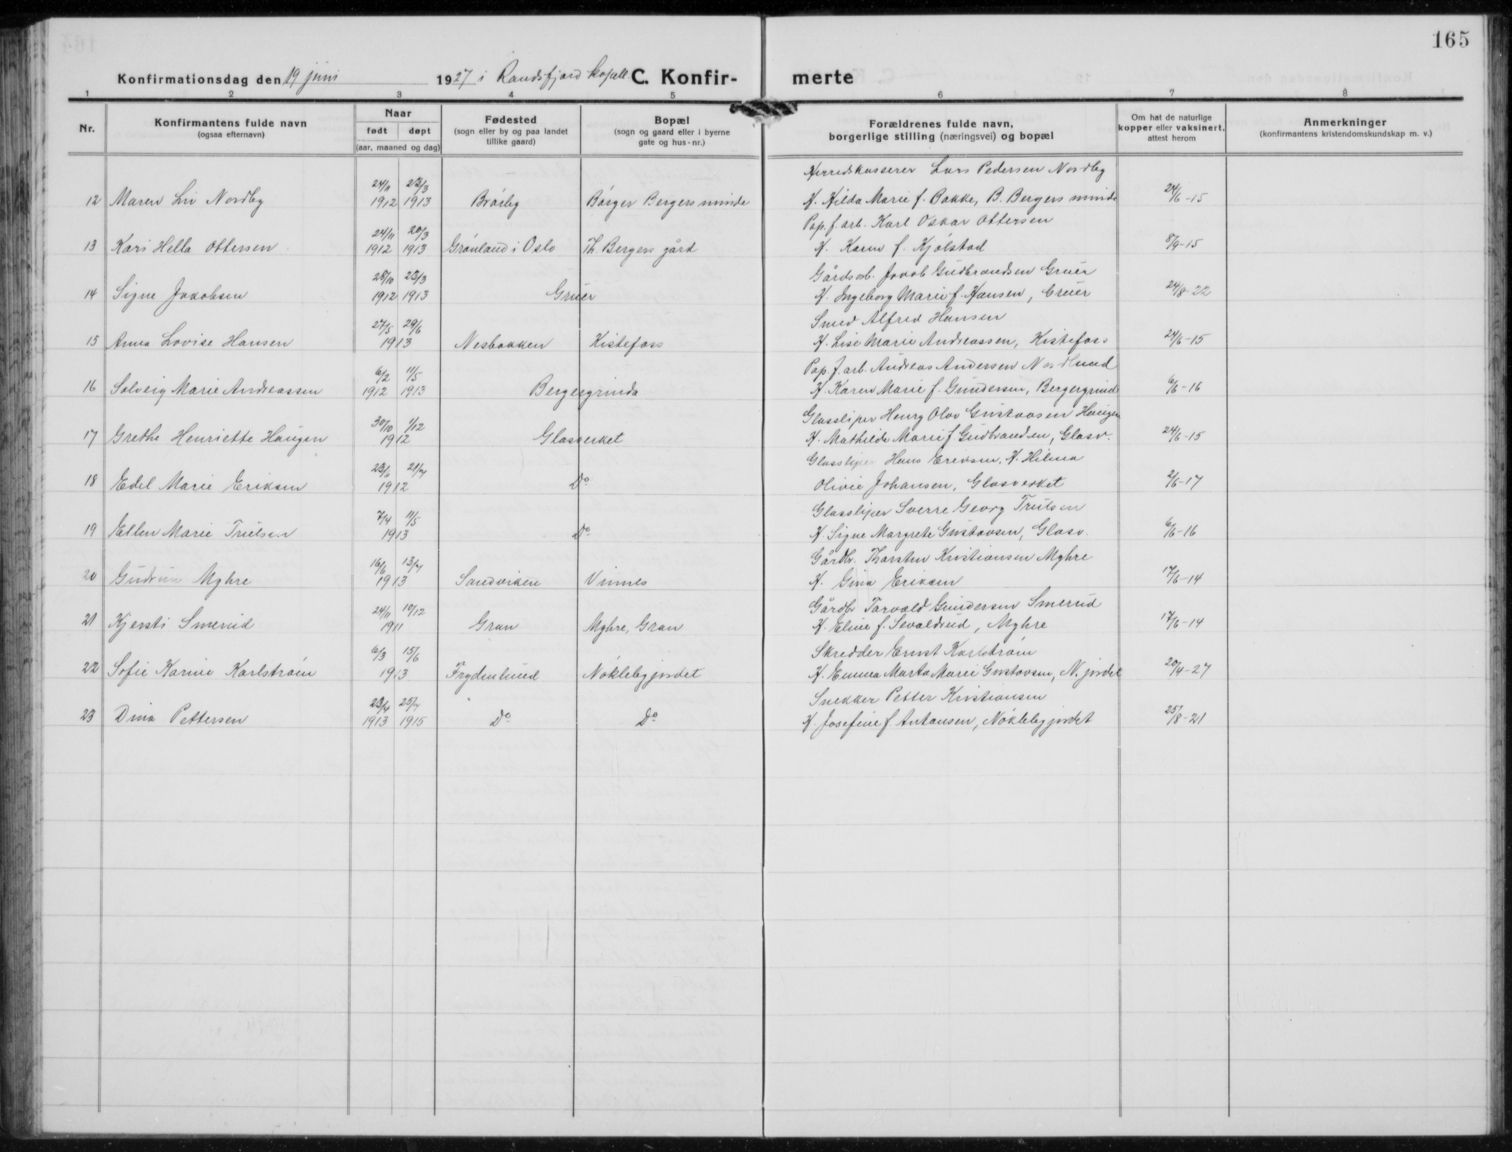 165
Konfirmationsdag den 19 juni 1927 i Randsfjord kapell C. Konfir- merte
1 2 3 4 5 6 7 8
Nr. Konfirmantens fulde navn (ogsaa efternavn) Naar født døpt (aar, maaned og dag) Fødested (sogn eller by og paa landet tillike gaard) Bopæl (sogn og gaard eller i byerne gate og hus-nr.) Forældrenes fulde navn, borgerlige stilling (næringsvei) og bopæl Om hat de naturlige kopper eller vaksinert, attest herom Anmerkninger (konfirmantens kristendomskundskap m. v.)
Herredskasserer Lars Pedersen Nordby
12 Maren Liv Nordby 24/11 1912 23/3 1913 Bråby Børger Bergersminde H. Hilda Marie f. Bakke, B. Bergersminde 24/6-15
Pap.f.arb. Karl Oskar Ottersen
13 Kari Hella Ottersen 24/11 1912 20/3 1913 Grønland i Oslo Th. Bergers gård H. Karen f. Kjølstad 8/9-15
Gårdsarb. Jacob Gudbrandsen Gruer
14 Signe Jacobsen 28/10 1912 23/3 1913 Gruer H. Ingeborg Marie f. Hansen, Gruer 24/8-22
Smed Alfred Hansen
15 Anna Lovise Hansen 27/5 29/6 1913 Nesbakken Kistefoss H. Lise Marie Andreassen, Kistefoss 24/6-15
Pap.f.arb. Andreas Andersen Nordlund
16 Solveig Marie Andreassen 6/2 1912 11/5 1913 Bergergrinda H. Karen Marie f. Gundersen, Bergergrind 6/6-16
Glassliper Henry Olav Gustavsen Haugen
17 Grethe Henriette Haugen 30/10 1/12 1912 Glasverket H. Mathilde Marie f. Gudbrandsen, Glasv. 24/6-15
Glassliper Hans Eriksen, H. Hilma
18 Edel Marie Eriksen 23/6 21/7 1912 Do Olivie Johansen, Glasverket 2/6-17
Glassliper Sverre Georg Trulsen
19 Ellen Marie Trulsen 7/4 11/5 1913 Do H. Signe Margrete Gustavsen, Glasv. 6/6-16
Gårdbr. Thorsten Kristiansen Myhre
20 Gudrun Myhre 16/6 13/7 1913 Sandviken Vinnes H. Gina Eriksen 17/6-14
Gårdbr. Torvald Gundersen Smerud
21 Kjersti Smerud 24/11 10/12 1911 Gran Myhre, Gran H. Eline f. Sevaldrud, Myhre 17/6-14
Skredder Ernst Karlstrøm
22 Sofie Karine Karlstrøm 6/3 15/6 1913 Frydenlund Nøklebyjordet H. Emma Marta Marie Gustavsen, N.jordet 20/4-27
Snekker Petter Kristiansen
23 Dina Pettersen 23/4 1913 25/7 1915 Do Do H. Josefine f. Antonsen, Nøklebyjordet 25/8-21